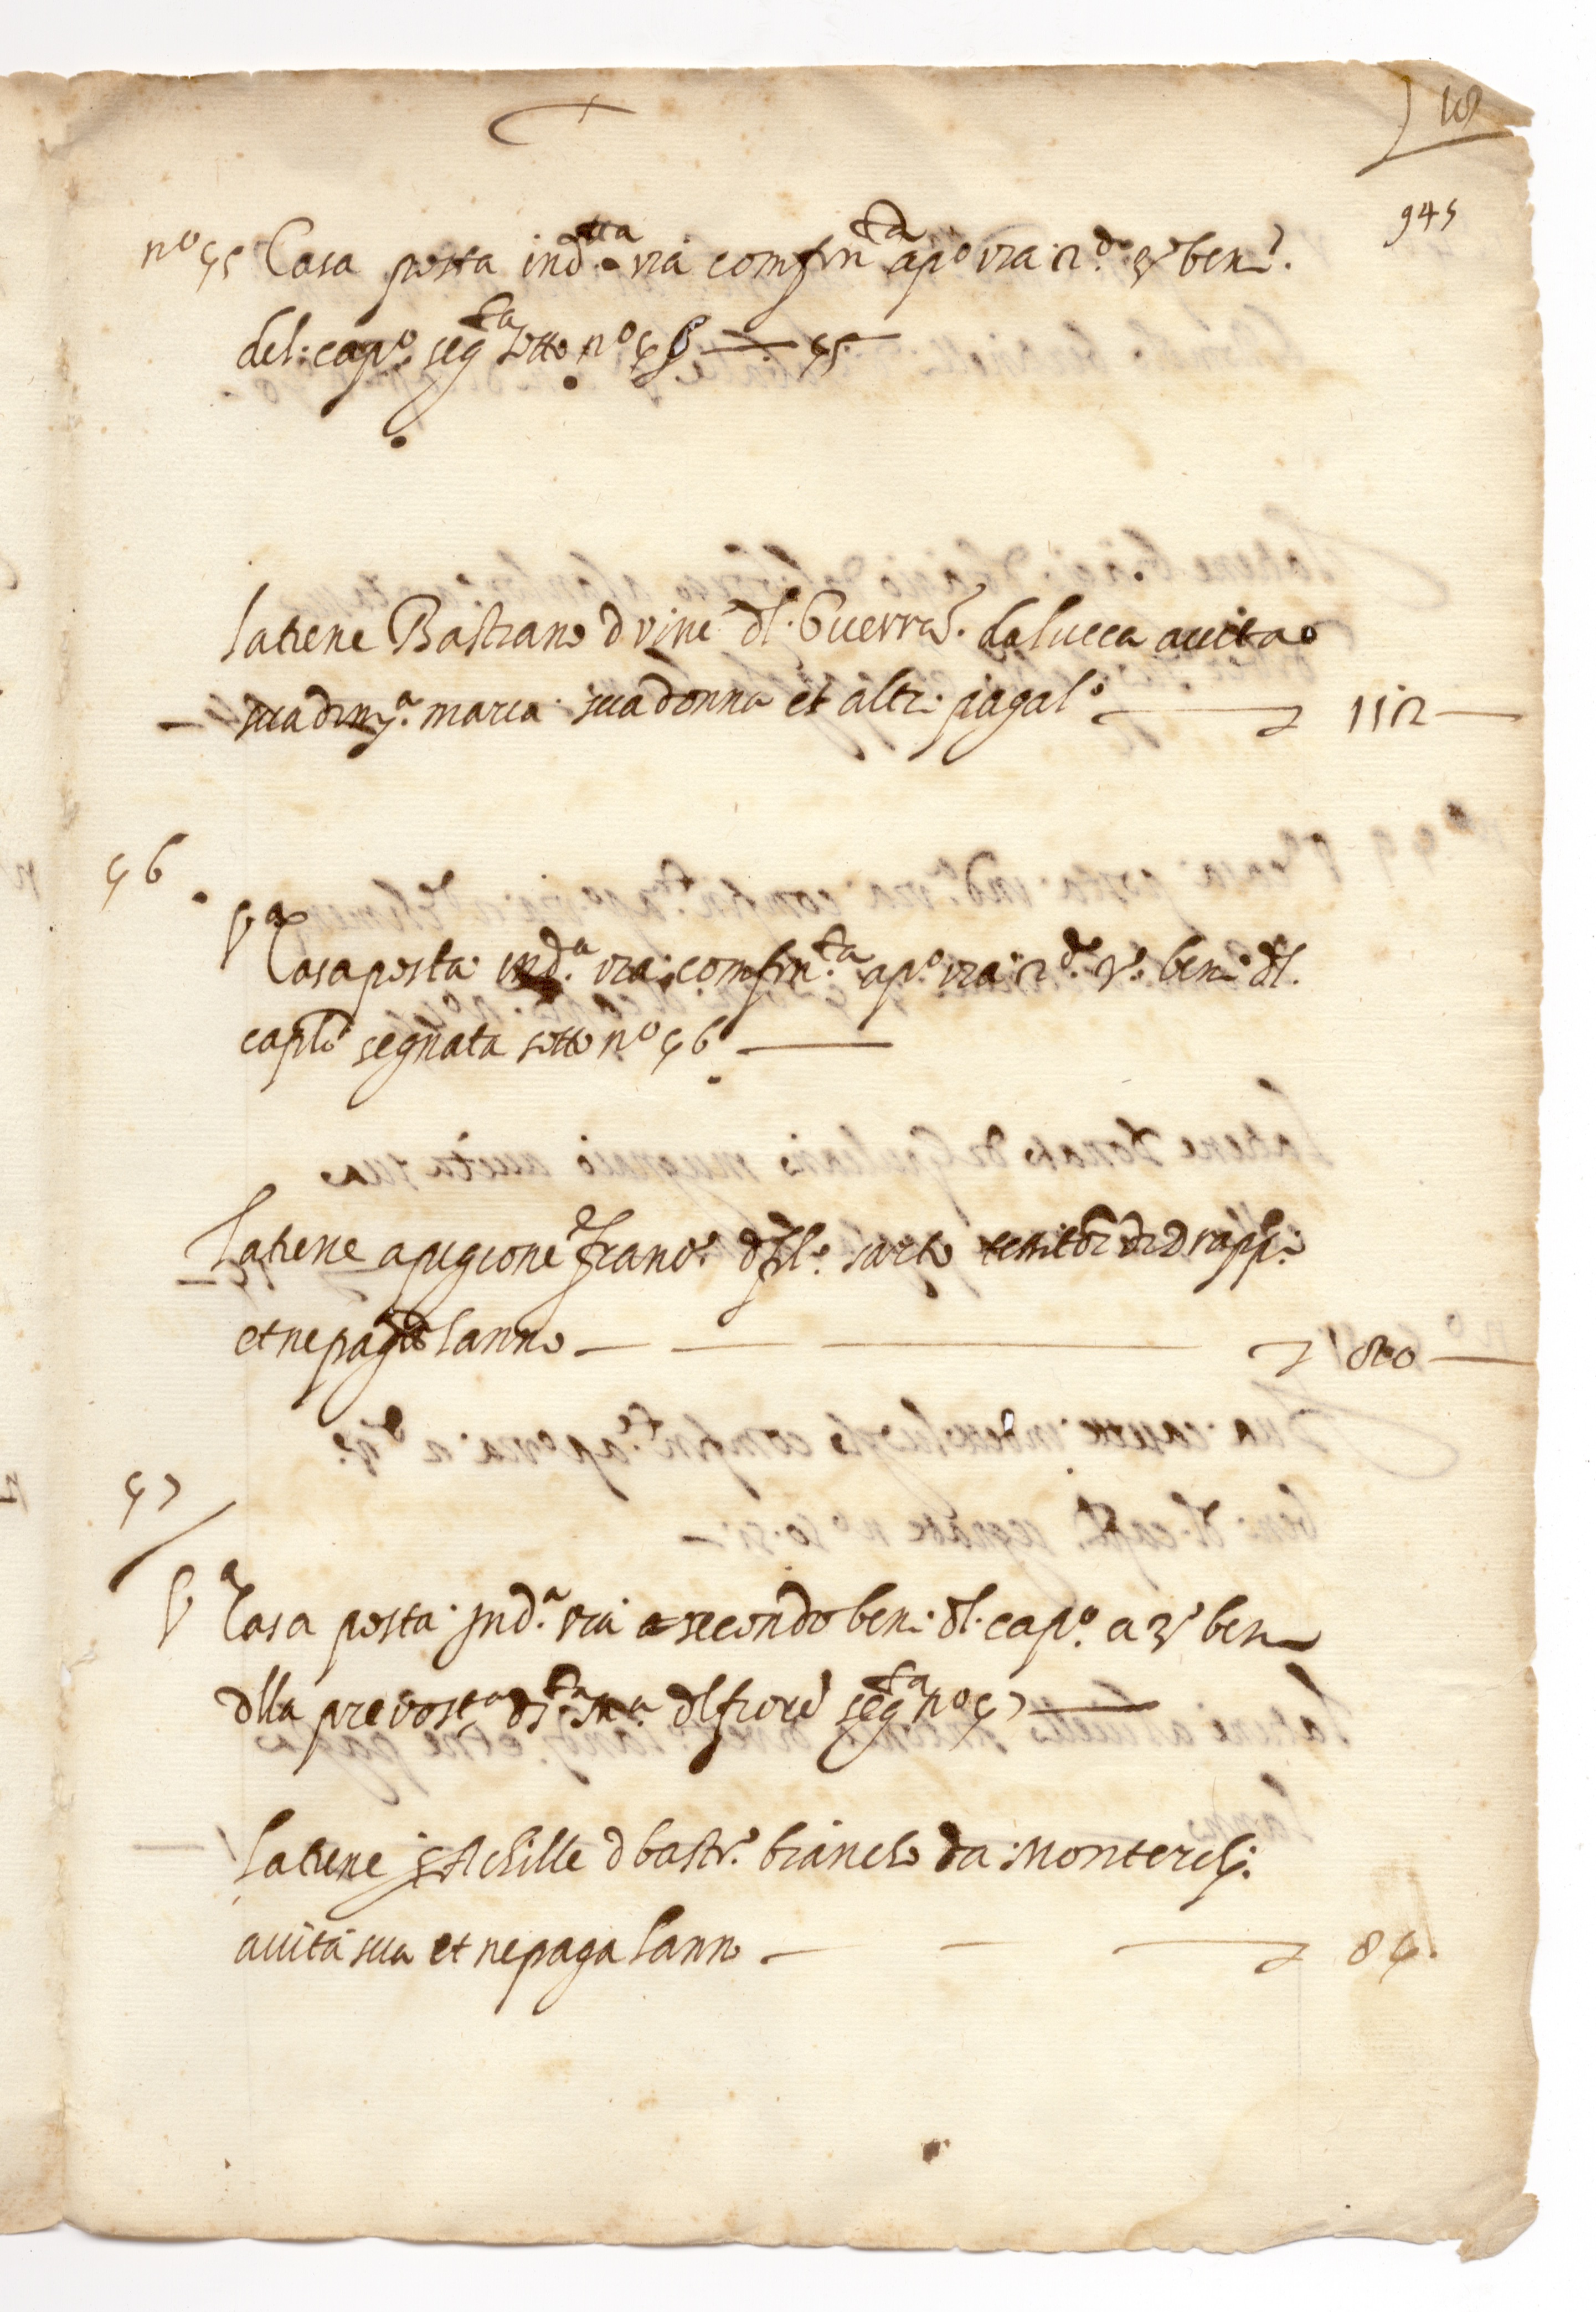 18
945
n.o 45 Casa posta in d.tta via comfin.ta a p.o via 2.o 3.o beni
del cap.o seg.ta sotto n.o 45
la tiene Bastiano d vinc.o dl Guerra da lucca a vita
sua d m.a maria sua donna et altri paga l.o — 112 —
46
V.a Casa posta in d.a via comfin.ta a p.o via 2.o 3.o beni dl
capl.o segnata sotto n.o 46 —
la tiene a pigione franc.o sarto di drappi
et ne paga lanno — 80 —
47
V.a Casa posta in d.a via a secondo beni dl cap.o a 3.o beni
dlla prevosta di s.ta m.a dl fiore seg.ta n.o 47 —
la tiene Achille d bast.o bianchi da Monterchi
a vita sua et ne paga lanno — 84.